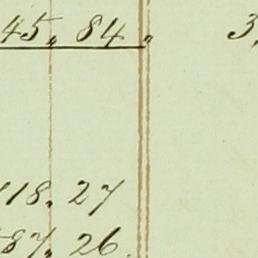 45. 84. 3,
118. 27
87. 26.